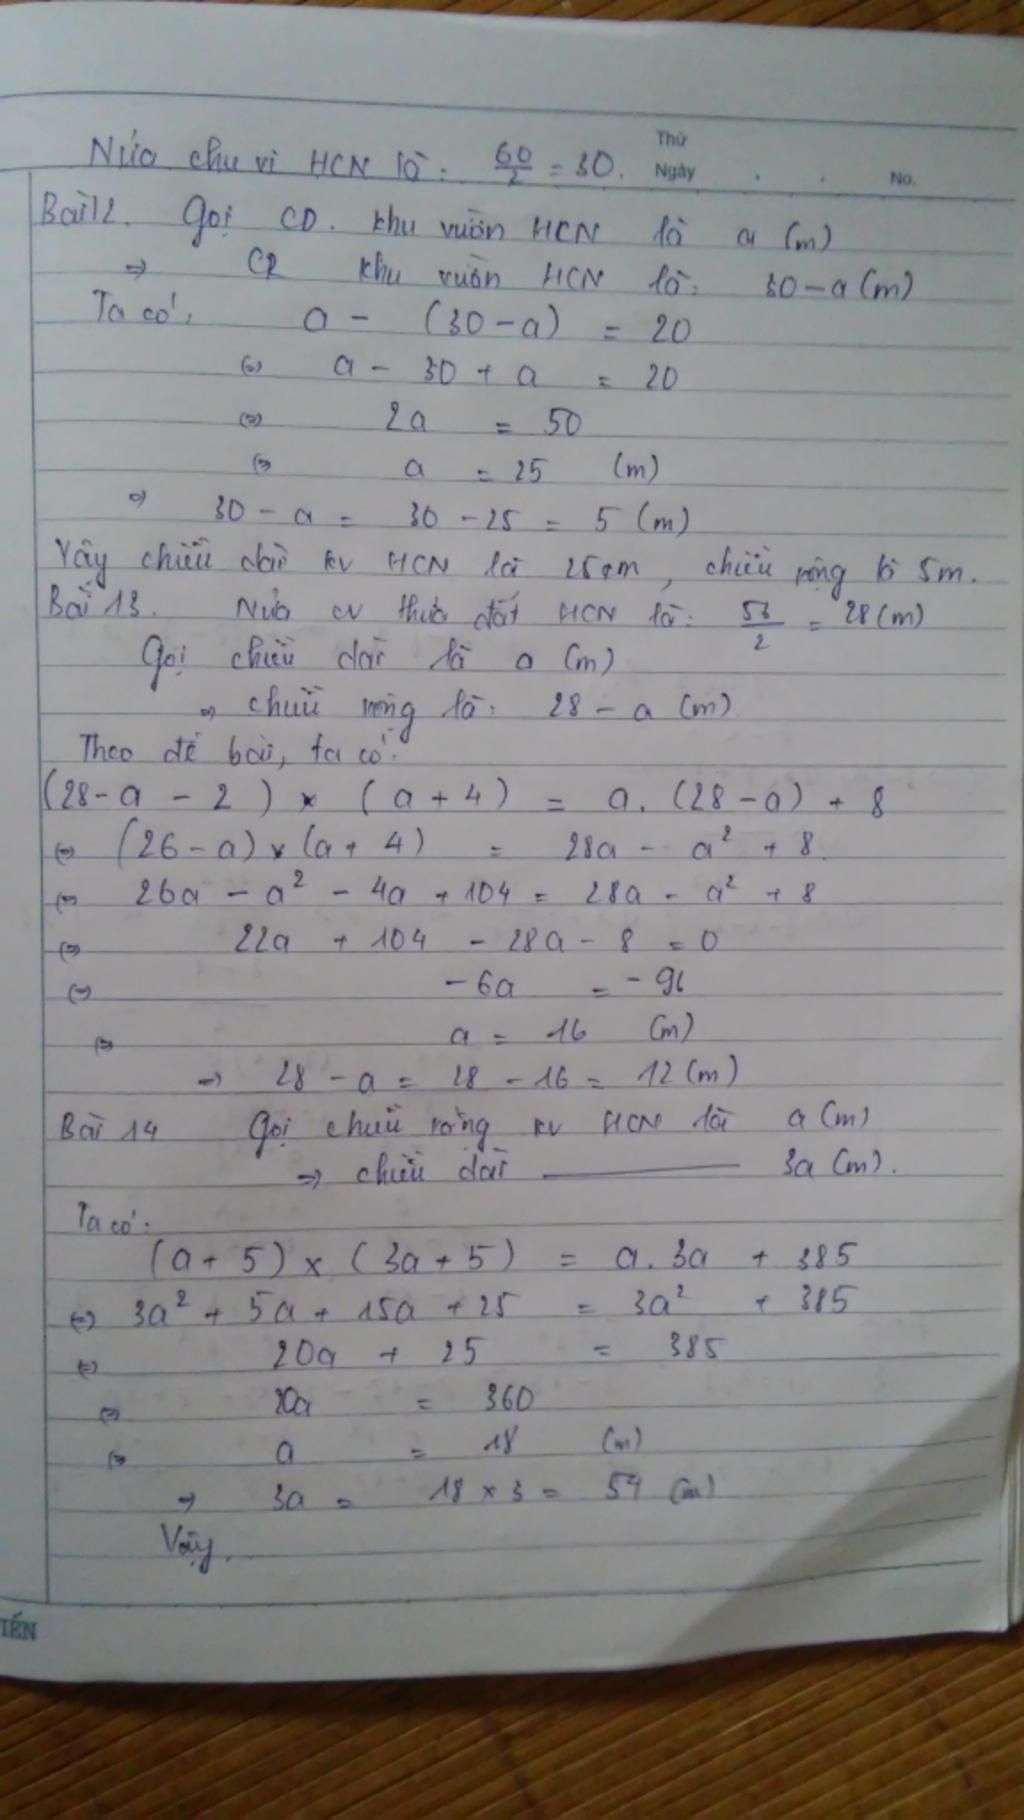 Nửa chu vi HCN là: 60/2 = 30.
Thứ
Ngày . . No.
Bài 12. Gọi CD. khu vườn HCN là a (m)
=> CR khu vườn HCN là: 30 - a (m)
Ta có: a - (30 - a) = 20
(=) a - 30 + a = 20
(=) 2a = 50
(=) a = 25 (m)
=> 30 - a = 30 - 25 = 5 (m)
Vậy chiều dài kv HCN là 25 m, chiều rộng là 5m.
Bài 13. Nửa cv thửa đất HCN là: 56/2 = 28 (m)
Gọi chiều dài là a (m)
=> chiều rộng là: 28 - a (m)
Theo đề bài, ta có:
(28 - a - 2) × (a + 4) = a. (28 - a) + 8
(=) (26 - a) × (a + 4) = 28a - a² + 8.
(=) 26a - a² - 4a + 104 = 28a - a² + 8
(=) 22a + 104 - 28a - 8 = 0
(=) -6a = -96
(=) a = 16 (m)
=> 28 - a = 28 - 16 = 12 (m)
Bài 14 Gọi chiều rộng kv HCN là a (m)
=> chiều dài ——— 3a (m).
Ta có:
(a + 5) × (3a + 5) = a. 3a + 385
(=) 3a² + 5a + 15a + 25 = 3a² + 385
(=) 20a + 25 = 385
(=) 20a = 360
(=) a = 18 (m)
=> 3a = 18 × 3 = 54 (m)
Vậy.
TIẾN